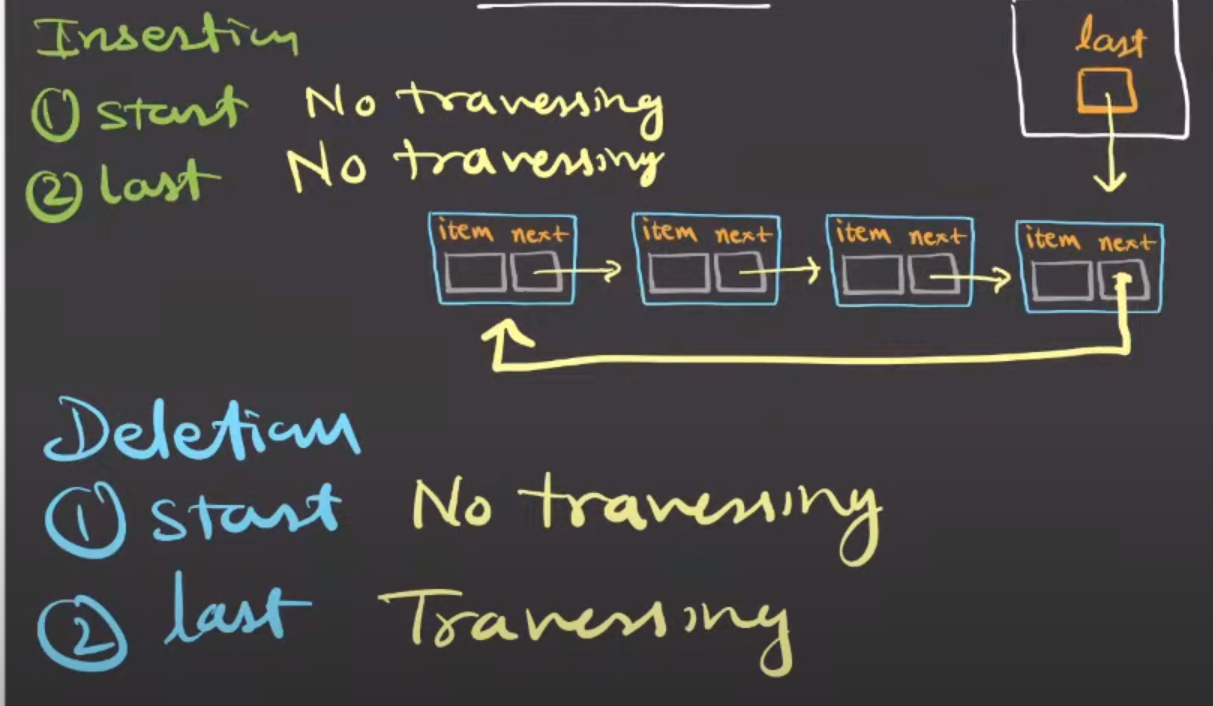 Insertion
① start No traversing
② last No traversing
last
item next item next item next item next
Deletion
① start No traversing
② last Traversing